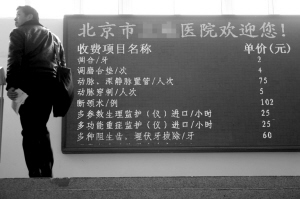 北京市 医院欢迎您!
收费项目名称 单价(元)
调合/牙 2
调磨台垫/次 4
动脉、深静脉置管/人次 75
动脉穿刺/人次 5
断颌术/例 102
多参数生理监护(仪)进口/小时 25
多功能重症监护(仪)进口/小时 25
多种阻生齿、埋伏牙拔除/牙 60